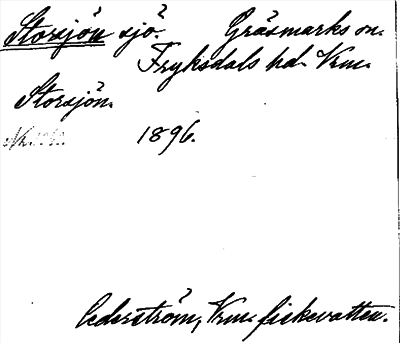 Storsjön sjö. Gräsmarks sn.
Fryksdals hd. Vrm.
Storsjön.
1896.
Cederström, Vrm. fiskevatten.